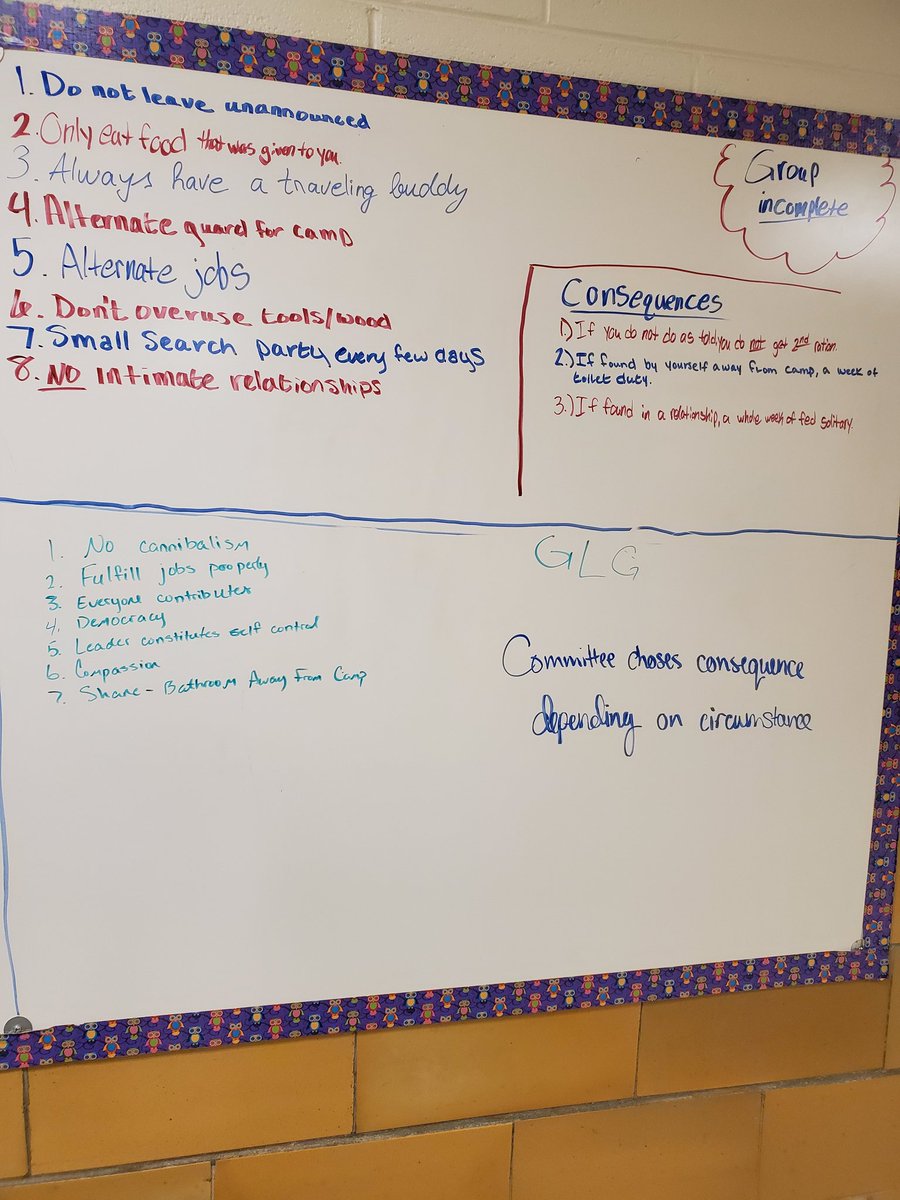 1. Do not leave unannounced
2. Only eat food that was given to you.
3. Always have a traveling buddy
4. Alternate guard for camp
5. Alternate jobs
6. Don't overuse tools/wood
7. Small Search party every few days
8. NO intimate relationships
Group
incomplete
Consequences
1.) If you do not do as told, you do not get 2nd ration.
2.) If found by yourself away from camp, a week of
toilet duty.
3.) If found in a relationship, a whole week of fed solitary.
1. No cannibalism
2. Fulfill jobs properly
3. Everyone contributes
4. Democracy
5. Leader constitutes self control
6. Compassion
7. Share - Bathroom Away From Camp
GLG
Committee choses consequence
depending on circumstance